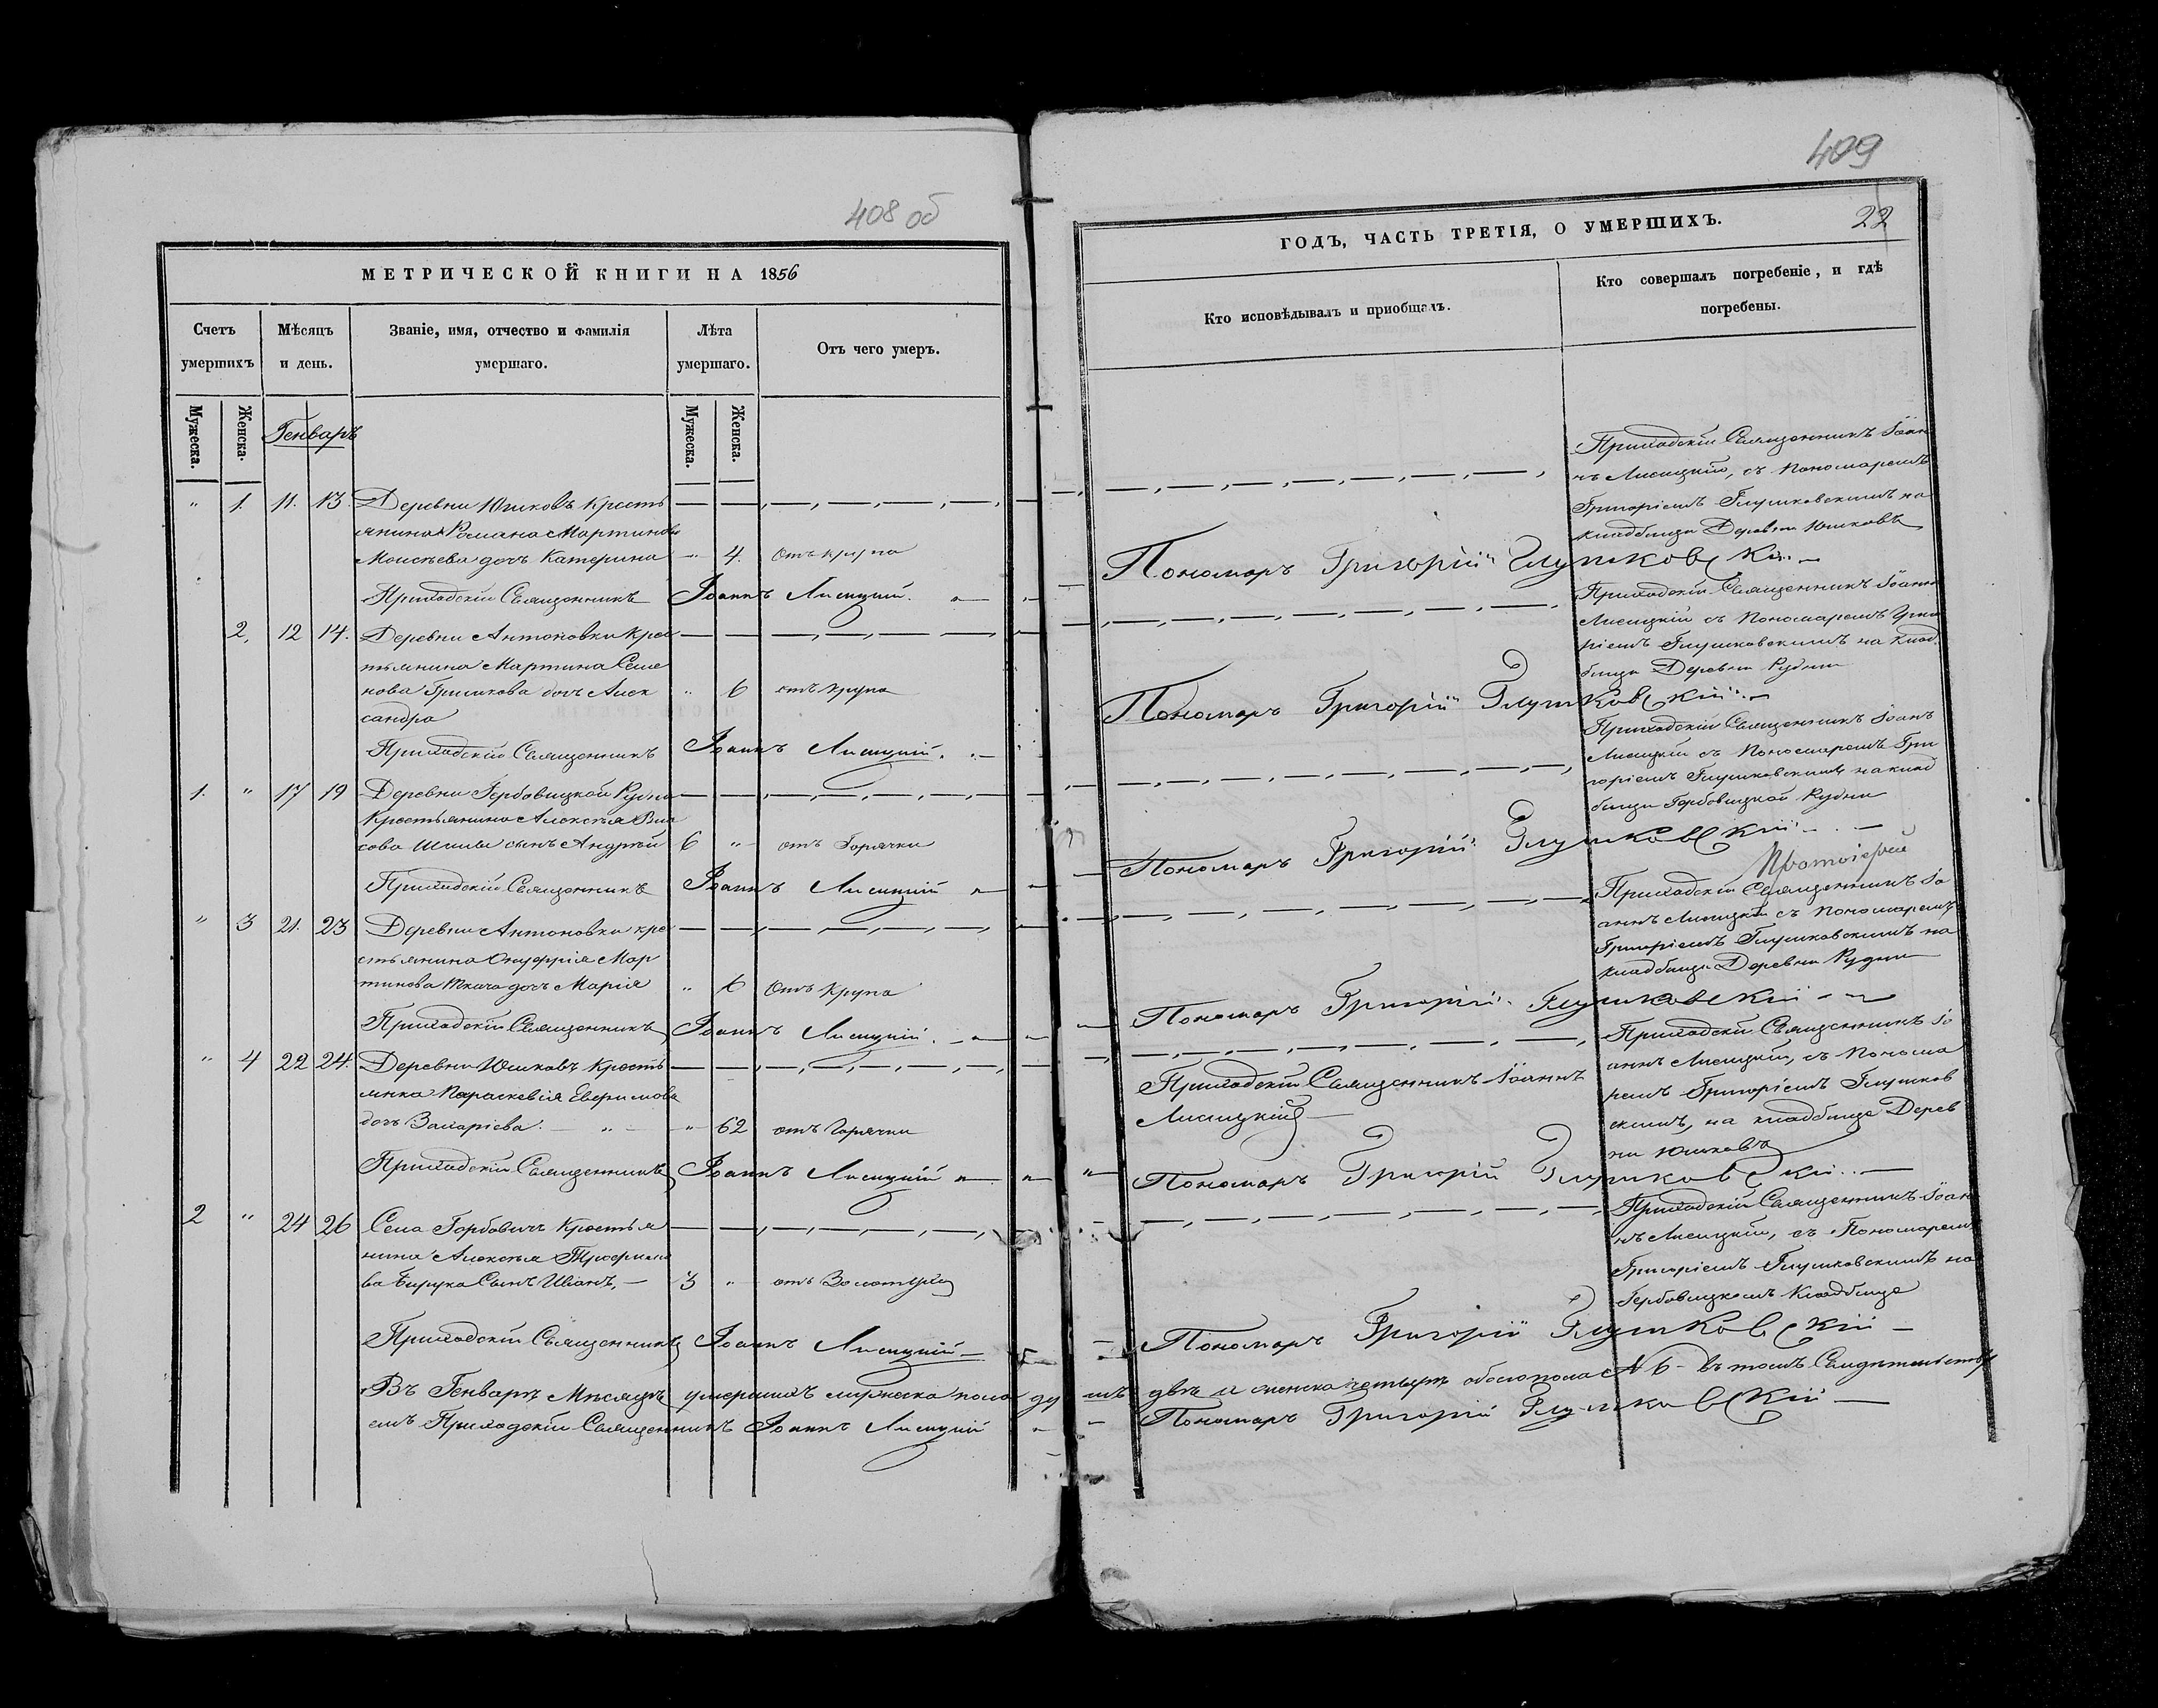 408 об
МЕТРИЧЕСКОЙ КНИГИ НА 1856
Счетъ умершихъ
Мѣсяцъ и день.
Званіе, имя, отчество и фамилія умершаго.
Лѣта умершаго.
Отъ чего умеръ.
Мужеска.
Женска.
Генваръ
Мужеска.
Женска.
" 1. 11. 13. Деревни Юшковъ кресть
янина Романа Мартинова
Моисѣева дочь Катерина " 4. отъ крупа
Приходскій Священникъ Іоаннъ Лисицкій.
2, 12 14. Деревни Антоновки крес
тьянина Мартина Семе
нова Гришкова дочь Алек " 6 отъ крупа
сандра
Приходскій Священникъ Іоаннъ Лисицкій.
1. " 17 19 Деревни Горбовицкой Рудни
крестьянина Алексѣя Вла
сова Шила сынъ Андрѣй 6 " отъ Горячки
Приходскій Священникъ Іоаннъ Лисицкій
" 3 21. 23 Деревни Антоновки кре
стьянина Онуфрія Мар
тинова Ткача дочь Марія " 6 отъ крупа
Приходскій Священникъ Іоаннъ Лисицкій.
" 4 22 24. Деревни Юшковъ кресть
янка Параскевія
дочь Захаріева. " 62 отъ Горячки
Приходскій Священникъ Іоаннъ Лисицкій
2 " 24 26 Села Горбовичъ крестья
нина Алексѣя Трофимо
ва Бирука Сынъ Иванъ, 3 " отъ Золотухи
Приходскій Священникъ Іоаннъ Лисицкій
Въ Генварѣ Мѣсяцѣ умершихъ мужеска пола два и женска четыре обоего пола № 6 въ томъ Свидѣтельству
емъ Приходскій Священникъ Іоаннъ Лисицкій
409
ГОДЪ, ЧАСТЬ ТРЕТІЯ, О УМЕРШИХЪ.
22
Кто исповѣдывалъ и приобщалъ.
Кто совершалъ погребеніе, и гдѣ
погребены.
Приходскій Священникъ Іоан
нъ Лисицкій, съ Пономаремъ
Григоріемъ Глушковскимъ на
кладбищѣ Деревни Юшковъ
Пономаръ Григорій Глушковскій
Приходскій Священникъ Іоаннъ
Лисицкій съ Пономаремъ Григо
ріемъ Глушковскимъ на клад
бищѣ Деревни Рудни
Пономаръ Григорій Глушковскій
Приходскій Священникъ Іоанъ
Лисицкій съ Пономаремъ Гри
горіемъ Глушковскимъ на клад
бищѣ Горбовицкой Рудни
Пономаръ Григорій Глушковскій
Протоіерей
Приходскій Священникъ Іо
аннъ Лисицкій съ Пономаремъ
Григоріемъ Глушковскимъ на
кладбищѣ Деревни Рудни
Пономаръ Григорій Глушковскій
Приходскій Священникъ Іоаннъ
Лисицкій
Приходскій Священникъ Іо
аннъ Лисицкій, съ Понома
ремъ Григоріемъ Глушков
скимъ, на кладбищѣ Дерев
ни Юшковъ
Пономаръ Григорій Глушковскій
Приходскій Священникъ Іоан
нъ Лисицкій, съ Пономаремъ
Григоріемъ Глушковскимъ на
Горбовицкомъ Кладбищѣ
Пономаръ Григорій Глушковскій
Пономаръ Григорій Глушковскій